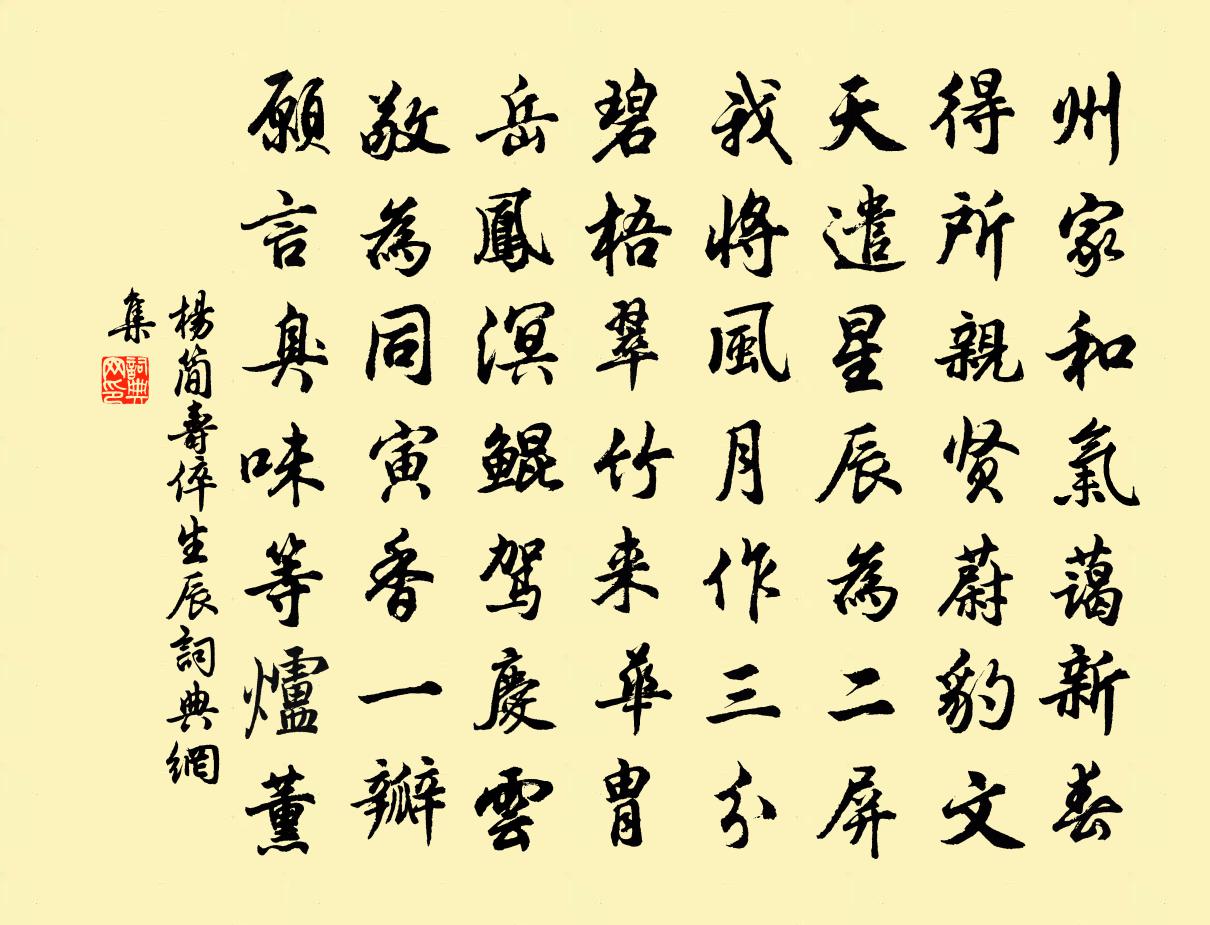 州家和氣藹新春
得所親賢蔚豹文
天遣星辰為二屏
我將風月作三分
碧梧翠竹来華胄
岳鳳溟鯤駕慶雲
敬為同寅香一瓣
願言臭味等爐薰
楊簡壽倅生辰詞典網
集
詞典網印